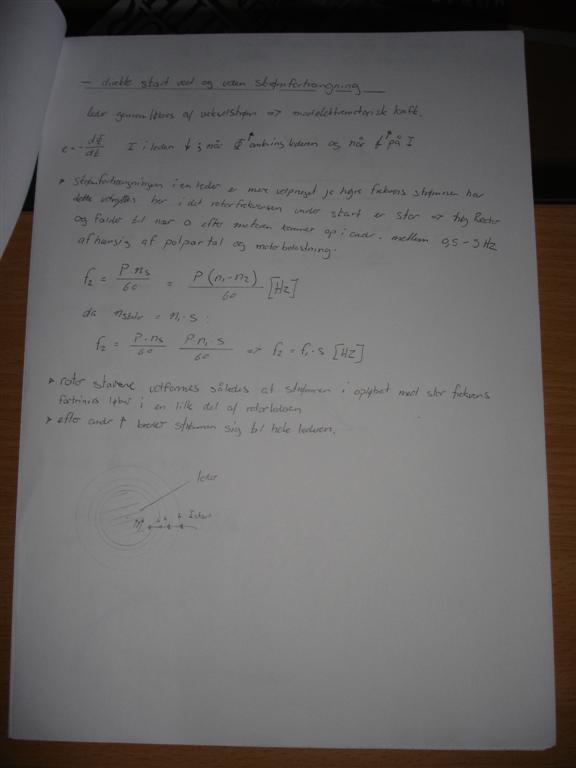 - direkte start ved og uden strømfortrængning
leder gennemløbes af vekselstrøm => modelektromotorisk kraft.
e = - dΦ/dt I i lederen ↓ ; når Φ↑ omkring lederen og når f↑ på I
▸ Strømfortrængningen i en leder er mere udpræget jo højre frekvens strømmen har
dette udnyttes her i det rotorfrekvensen under start er stor => høj
og falder til nær 0 efter motoren kommer op i omdr. mellem 0,5 - 3 Hz
afhænsig af polpartal og motorbelastning.
f₂ = P·ns/60 = P(n₁-n₂)/60 [Hz]
da = n₁·s :
f₂ = P·ns/60 P·n₁·s/60 => f₂ = f₁·s [HZ]
▸ rotor stavene udformes således at strømmen i opløbet med stor frekvens
løber i en lille del af rotorlederen
▸ efter omdr ↑ breder strømmen sig til hele lederen.
leder
I start